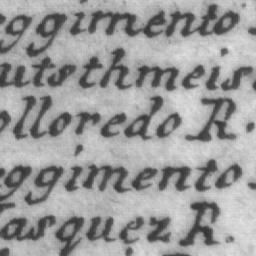 eggimento
utsthmeis
olloredo R.
eggimento
asquez R.